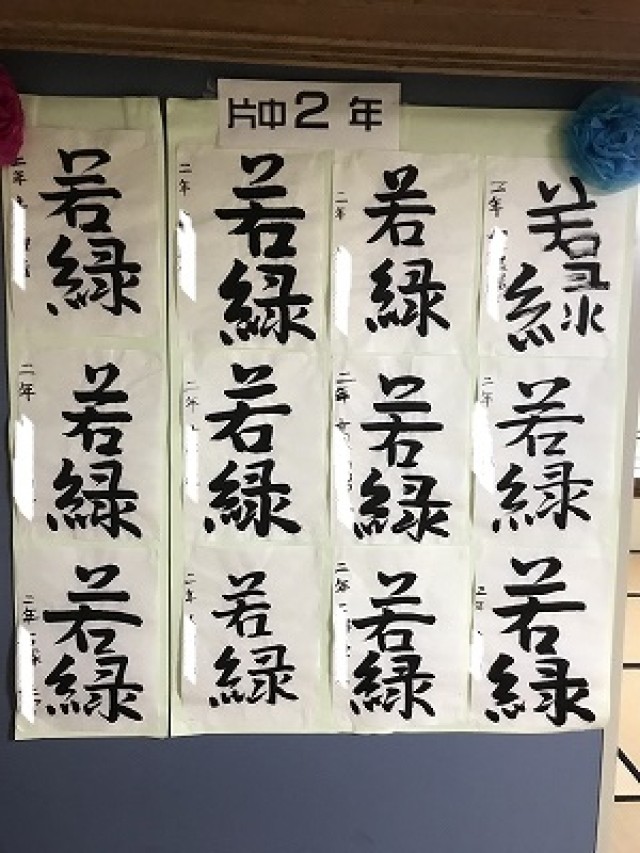 片中2年
若緑
二年
若緑
二年
若緑
二年
若緑
二年
若緑
二年
若緑
二年
若緑
二年
若緑
二年
若緑
二年
若緑
二年
若緑
二年
若緑
二年